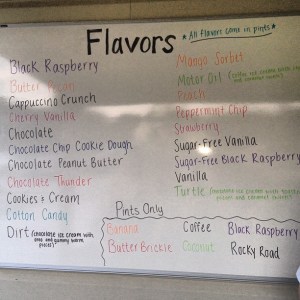 Flavors
*All flavors come in pints*
Black Raspberry
Butter Pecan
Cappuccino Crunch
Cherry Vanilla
Chocolate
Chocolate Chip Cookie Dough
Chocolate Peanut Butter
Chocolate Thunder
Cookies + Cream
Cotton Candy
Dirt (chocolate ice cream with oreo and gummy worm pieces)
Mango Sorbet
Motor Oil (coffee ice cream with
and caramel swirl)
Peach
Peppermint Chip
Strawberry
Sugar-Free Vanilla
Sugar-Free Black Raspberry
Vanilla
Turtle
Pints Only
Banana Coffee Black Raspberry
Butter Brickle Coconut Rocky Road